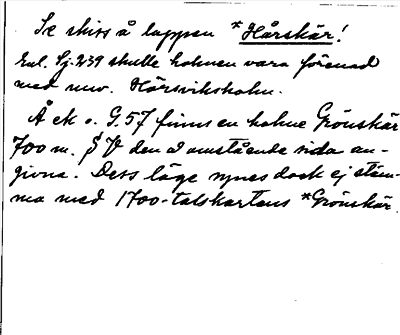 Se skiss å lappen *Hårskär!
Enl. Sj. 239 skulle holmen vara förenad
med nuv. Hårsviksholm.
Å ek o. G.57 finns en holme Grönskär
700 m. den å omstående sida an-
givna. Dess läge synes dock ej stäm-
ma med 1700-talskartans *Grönskär.